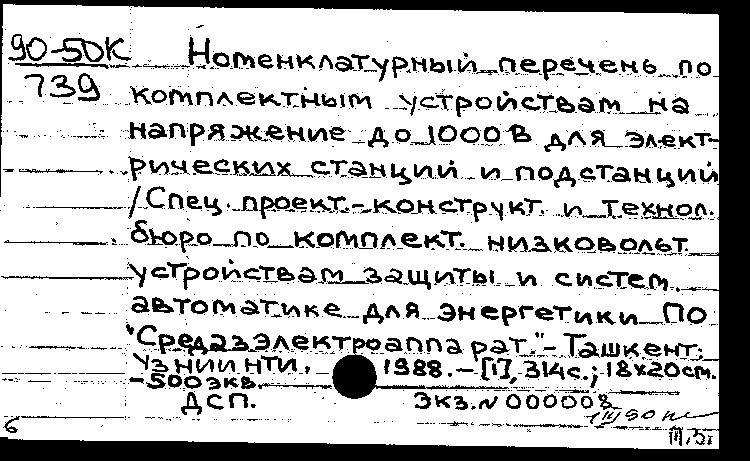 90-50К
739
Номенклатурный перечень по
комплектным устройствам на
напряжение до 1000 В для элект-
рических станций и подстанций
/Спец. проект.-конструкт. и технол.
бюро по комплект. низковольт.
устройствам защиты и систем.
автоматике для энергетики ПО
"Средазэлектроаппарат."- Ташкент:
УзНИИНТИ, 1988.-[1], 314с.; 18х20см.
-500экз.
ДСП. Экз.N 000008
6